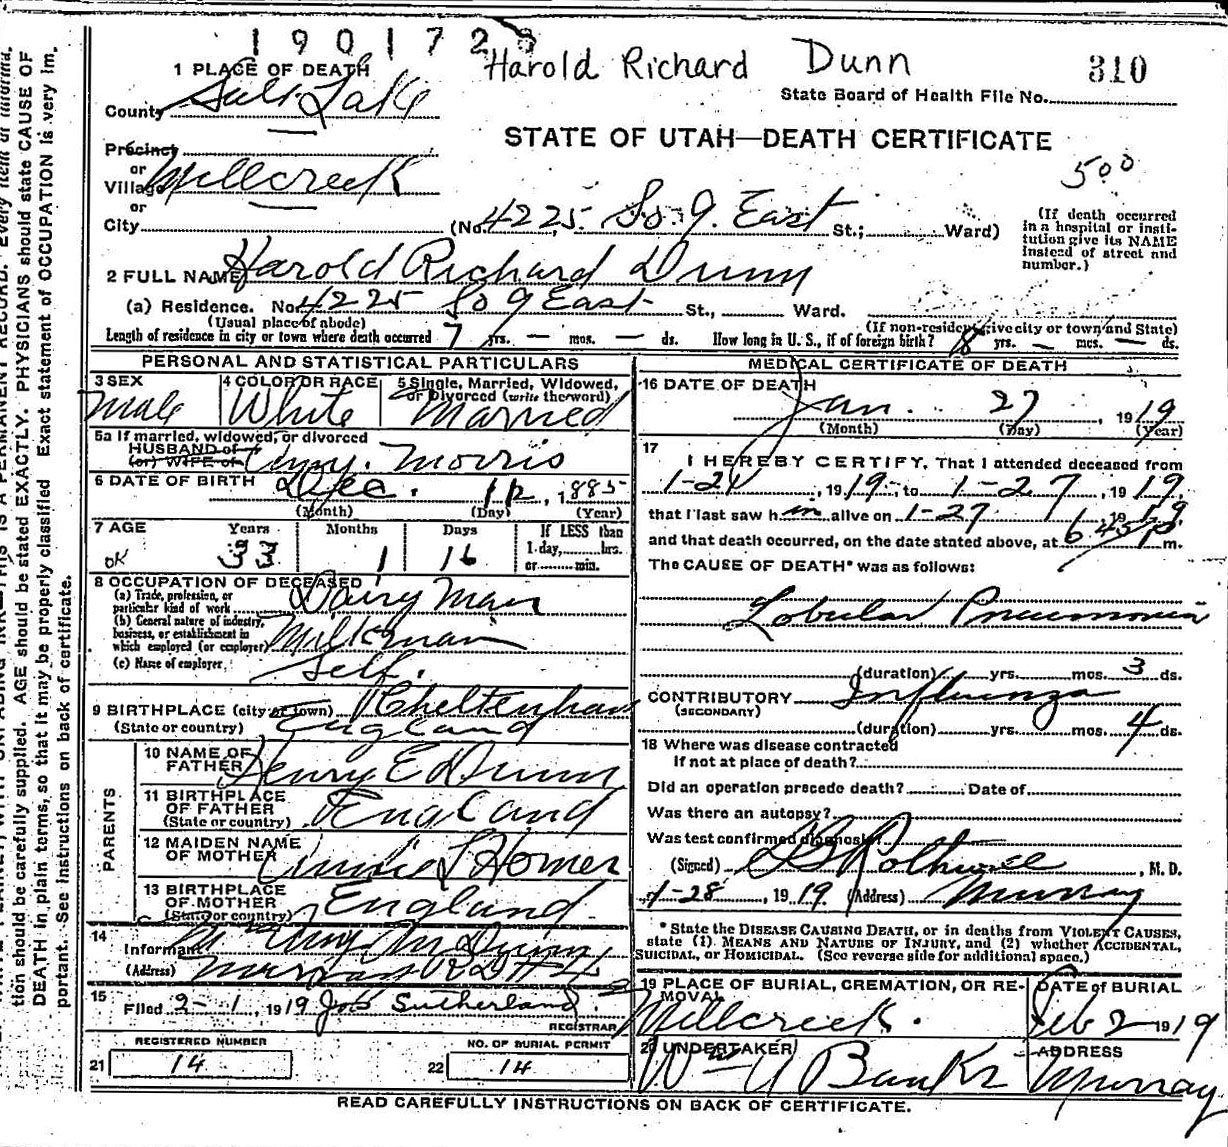 1901728
Harold Richard Dunn
310
1 PLACE OF DEATH
State Board of Health File No.
County Salt Lake
STATE OF UTAH—DEATH CERTIFICATE
Precinct
or
Village Millcreek
500
or
City (No. 4225 So. 9. East St.; Ward)
(If death occurred
in a hospital or insti-
tution give its NAME
instead of street and
number.)
2 FULL NAME Harold Richard Dunn
(a) Residence. No. 4225 So 9 East St., Ward.
(Usual place of abode) (If non-resident give city or town and State)
Length of residence in city or town where death occurred 7 yrs. — mos. — ds. How long in U. S., if of foreign birth? 8 yrs. — mos. — ds.
PERSONAL AND STATISTICAL PARTICULARS
3 SEX
Male
4 COLOR OR RACE
White
5 Single, Married, Widowed,
or Divorced (write the word)
Married
5a If married, widowed, or divorced
HUSBAND of
(or) WIFE of Amy. Morris
6 DATE OF BIRTH Dec. 12, 1885
(Month) (Day) (Year)
7 AGE Years Months Days If LESS than
1 day, hrs.
or min.
OK 33 1 16
8 OCCUPATION OF DECEASED
(a) Trade, profession, or
particular kind of work Dairy Man
(b) General nature of industry,
business, or establishment in
which employed (or employer) Milkman
(c) Name of employer Self.
9 BIRTHPLACE (city or town) Cheltenham
(State or country) England
PARENTS
10 NAME OF
FATHER Henry E Dunn
11 BIRTHPLACE
OF FATHER
(State or country) England
12 MAIDEN NAME
OF MOTHER Annie L Homer
13 BIRTHPLACE
OF MOTHER
(State or country) England.
14
Informant Amy M Dunn
(Address) Murray
15
Filed 2-1, 1919 Job Sutherland
REGISTRAR
REGISTERED NUMBER
21 14
NO. OF BURIAL PERMIT
22 14
MEDICAL CERTIFICATE OF DEATH
16 DATE OF DEATH
Jan. 27, 1919
(Month) (Day) (Year)
17
I HEREBY CERTIFY, That I attended deceased from
1-24, 1919, to 1-27, 1919,
that I last saw him alive on 1-27, 1919
and that death occurred, on the date stated above, at 6 45 P m.
The CAUSE OF DEATH* was as follows:
Lobular Pneumonia
(duration) yrs. mos. 3 ds.
CONTRIBUTORY Influenza
(SECONDARY)
(duration) yrs. mos. 4 ds.
18 Where was disease contracted
if not at place of death?
Did an operation precede death? Date of
Was there an autopsy?
Was test confirmed diagnosis?
(Signed) Rothwell, M. D.
1-28, 1919 (Address) Murray
* State the DISEASE CAUSING DEATH, or in deaths from VIOLENT CAUSES,
state (1). MEANS AND NATURE OF INJURY, and (2) whether ACCIDENTAL,
SUICIDAL, or HOMICIDAL. (See reverse side for additional space.)
19 PLACE OF BURIAL, CREMATION, OR RE-
MOVAL
Millcreek.
DATE of BURIAL
Feb 2 1919
20 UNDERTAKER
Wm A Banks
ADDRESS
Murray
READ CAREFULLY INSTRUCTIONS ON BACK OF CERTIFICATE.
tion should be carefully supplied. AGE should be stated EXACTLY. PHYSICIANS should state CAUSE OF
DEATH in plain terms, so that it may be properly classified. Exact statement of OCCUPATION is very im-
portant. See instructions on back of certificate.